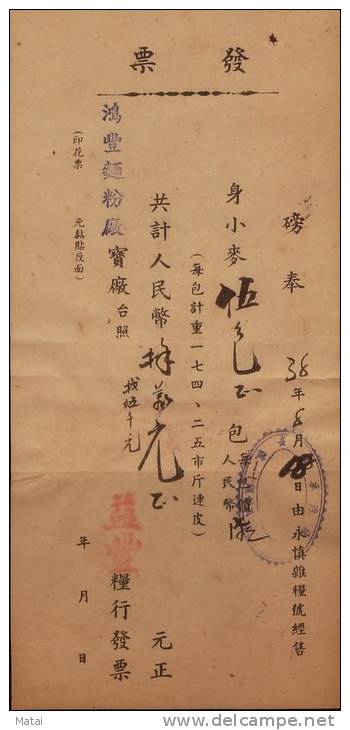 發票
磅奉
38年8月18日由永慎雜糧號經售
身小麥伍包正包
每包價
人民幣
(每包計重一七四、二五市斤連皮)
共計人民幣拾萬元正
元正
找伍千元
鴻豐麵粉廠寶廠台照
益豐糧行發票
年月日
(印花票 元黏貼反面)
Matai
delcampe.net